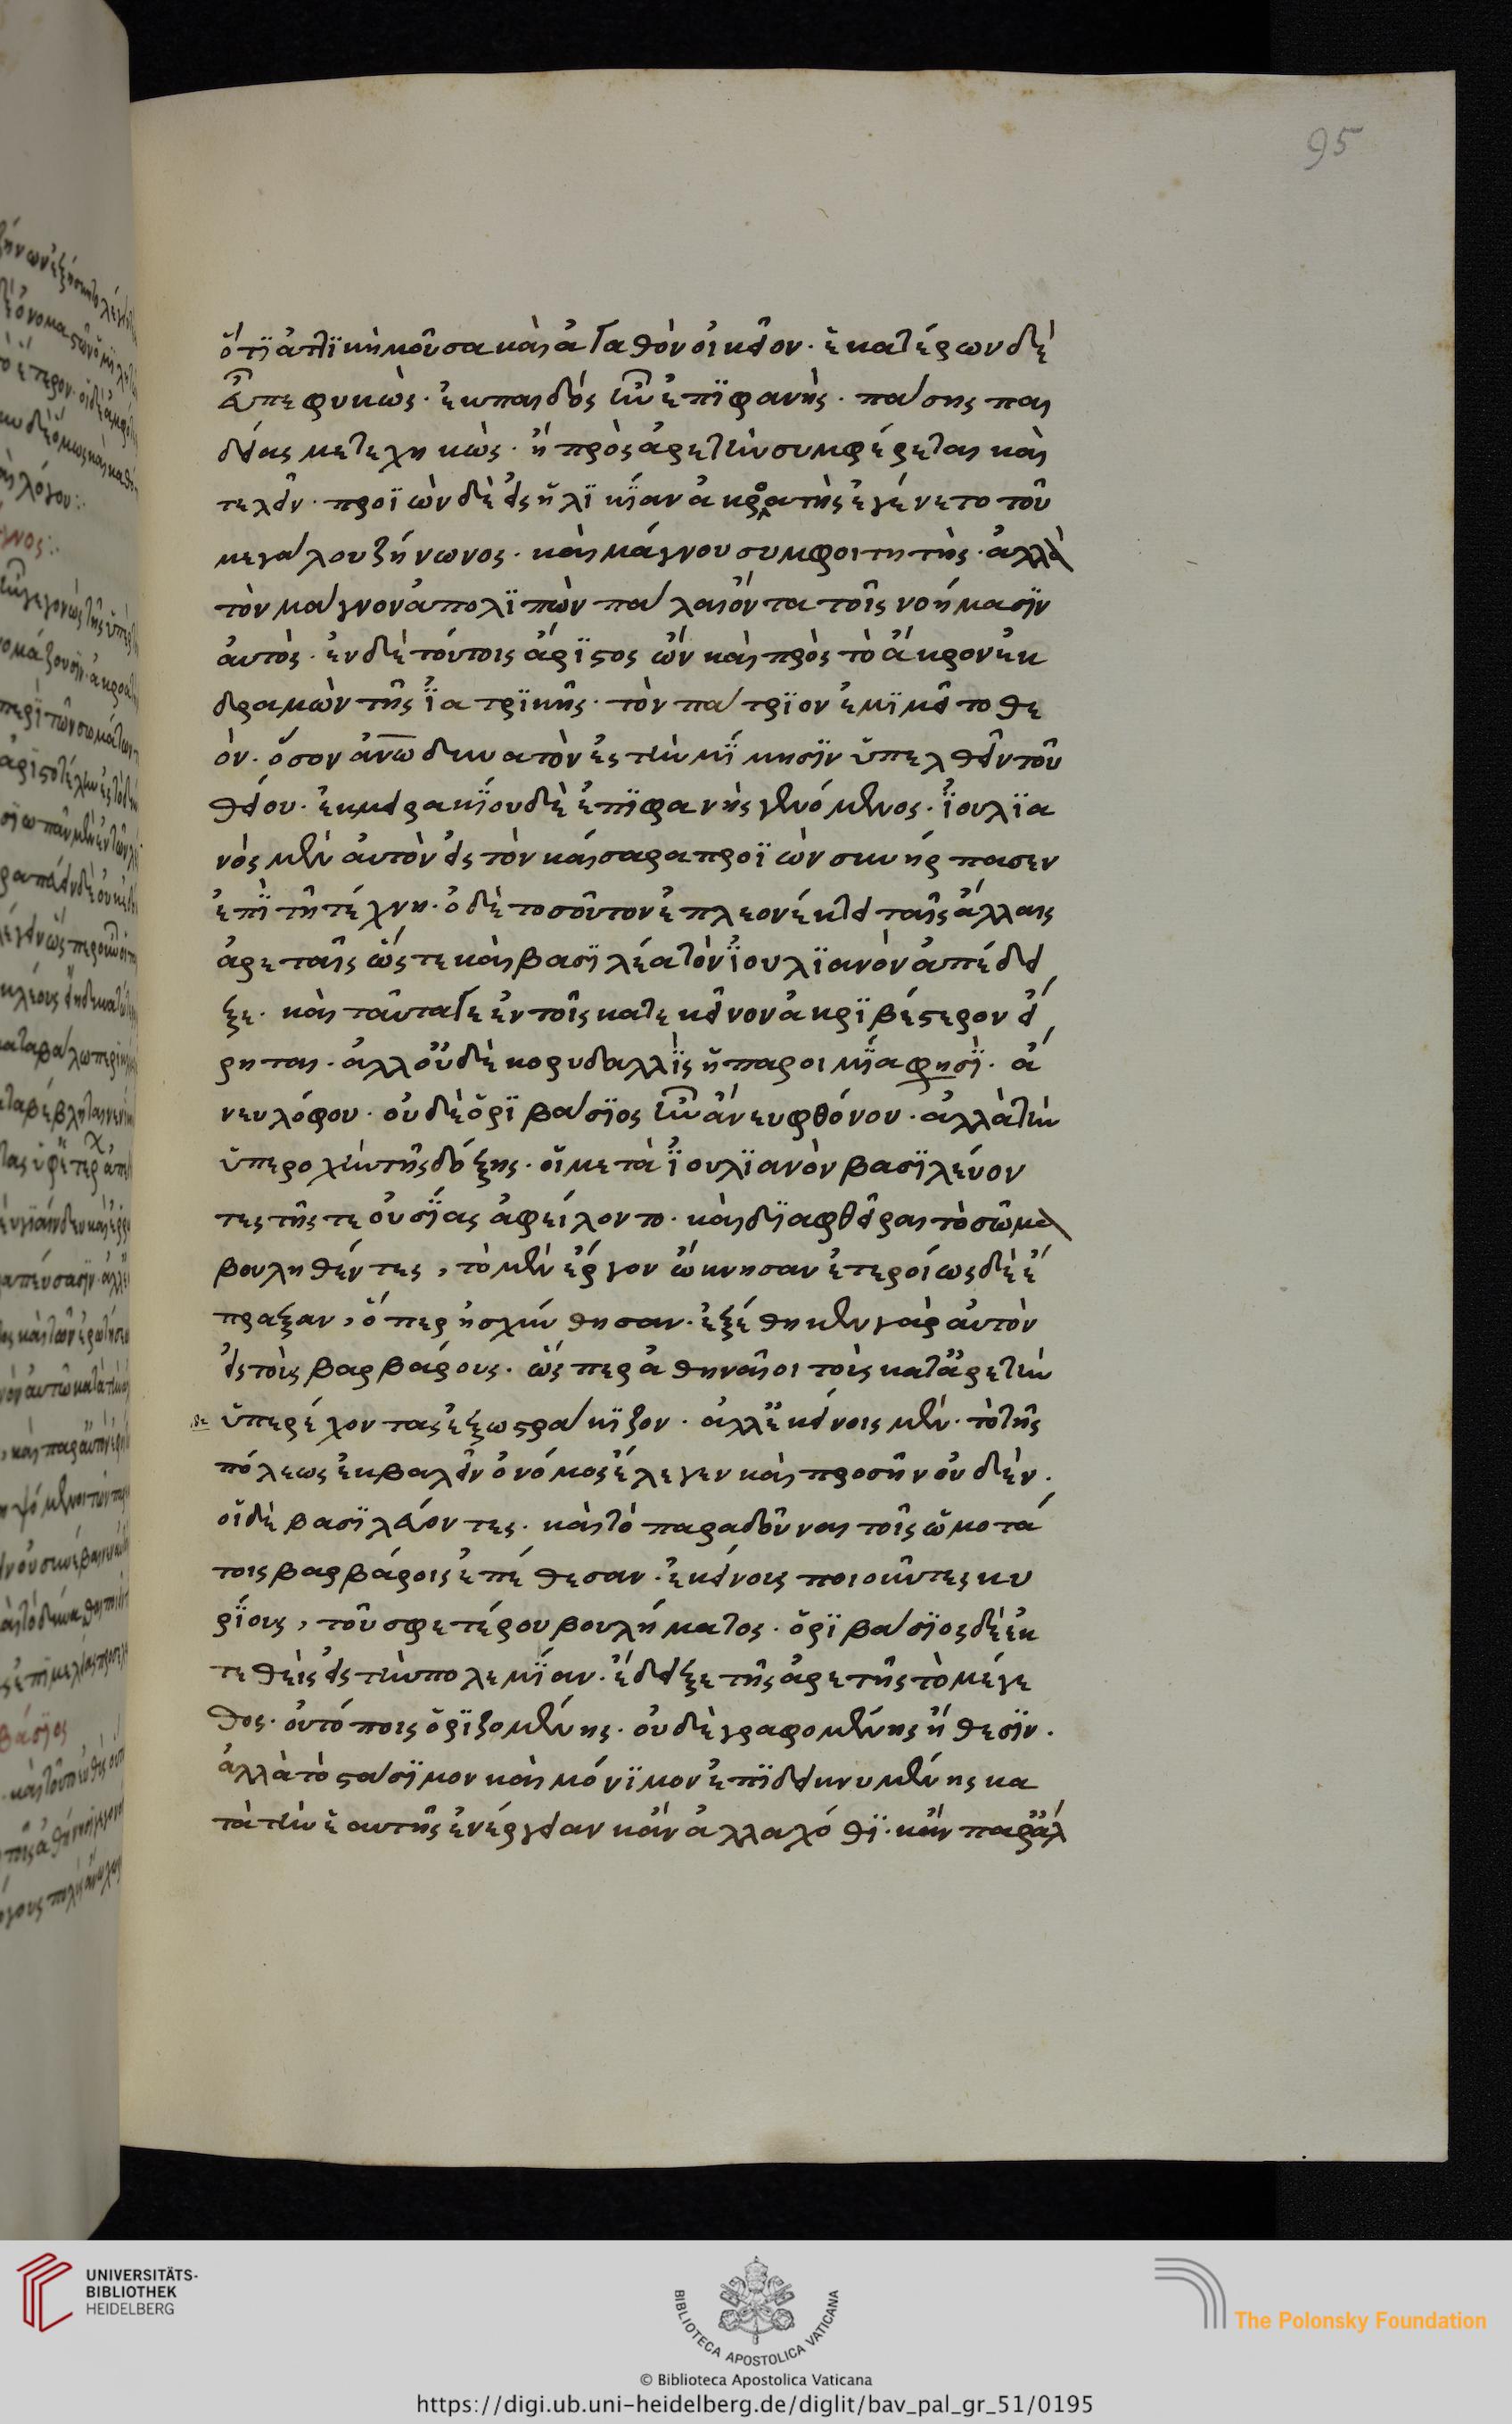 95
ὅτι ἀττικὴ μοῦσα καὶ ἀγαθὸν οἰκεῖον. ἑκατέρων δέ
εὖ πεφυκὼς. ἐκ παιδός ἦν ἐπιφανής. πάσης παι
δείας μετεχηκὼς. ἣ πρὸς ἀρετὴν συμφέρεται καὶ
τελεῖν. προϊὼν δὲ ἐς ἡλικίαν ἀκροατὴς ἐγένετο τοῦ
μεγάλου ζήνωνος. καὶ μάγνου συμφοιτητὴς. ἀλλὰ
τὸν μάγνον ἀπολιπὼν παλαίοντα τοῖς νοήμασιν
αὐτὸς. ἐν δὲ τούτοις ἄριστος ὢν καὶ πρὸς τὸ ἄκρον ἐκ
δραμὼν τῆς ἰατρικῆς. τὸν πάτριον ἐμιμεῖτο θε
ὸν. ὅσον ἀνω δυνατὸν ἐς τὴν μίμησιν ὑπελθεῖν τοῦ
θείου. ἐκ μειρακίου δὲ ἐπιφανὴς γενόμενος. ἰουλια
νὸς μὲν αὐτὸν εἰς τὸν καίσαρα προϊὼν συνήρπασεν
ἐπὶ τῆ τέχνη. ὁ δὲ τοσοῦτον ἐπλεονέκτει ταῖς ἄλλαις
ἀρεταῖς ὥς τε καὶ βασιλέα τὸν ἰουλιανὸν ἀπέδει
ξε. καὶ ταῦτα γε ἐν τοῖς κατ ἐκεῖνον ἀκριβέστερον εἴ
ρηται. ἀλλ οὐδὲ κορυδαλλὶς ἡ παροιμία φησὶ. ἄ
νευ λόφου. οὐδὲ ὀριβάσιος ἦν ἄνευ φθόνου. ἀλλὰ τὴν
ὑπεροχὴν τῆς δόξης. οἱ μετὰ ἰουλιανὸν βασιλεύον
τες τῆς τε οὐσίας ἀφείλοντο. καὶ διαφθεῖραι τὸ σῶμα
βουληθέντες, τὸ μὲν ἔργον ὤκνησαν ἑτεροίως δὲ ἔ
πραξαν, ὅπερ ἠσχύνθησαν. ἐξέθηκεν γὰρ αὐτὸν
εἰς τοὺς βαρβάρους. ὥς περ ἀθηναῖοι τοὺς κατ ἀρετὴν
ὑπερέχοντας ἐξωστράκιζον. ἀλλ ἐκείνοις μὲν. τὸ τῆς
πόλεως ἐκβαλεῖν ὁ νόμος ἔλεγεν καὶ προσῆν οὐδὲν.
οἱ δὲ βασιλεύοντες. καὶ τὸ παραδοῦναι τοῖς ὠμοτά
τοις βαρβάροις ἐπέθεσαν. ἐκείνους ποιοῦντες κυ
ρίους, τοῦ σφετέρου βουλήματος. ὀριβάσιος δὲ ἐκ
τεθεὶς εἰς τὴν πολεμίαν. ἔδειξε τῆς ἀρετῆς τὸ μέγε
θος. οὐ τόποις ὁριζομένης. οὐδὲ γραφομένης ἤθεσιν.
ἀλλὰ τὸ στάσιμον καὶ μόνιμον ἐπιδεικνυμένης κα
τὰ τὴν ἑαυτῆς ἐνέργειαν κἂν ἀλλαχόθι. κἂν παρ ἄλ
UNIVERSITÄTS-
BIBLIOTHEK
HEIDELBERG
BIBLIOTECA APOSTOLICA VATICANA
The Polonsky Foundation
© Biblioteca Apostolica Vaticana
https://digi.ub.uni-heidelberg.de/diglit/bav_pal_gr_51/0195